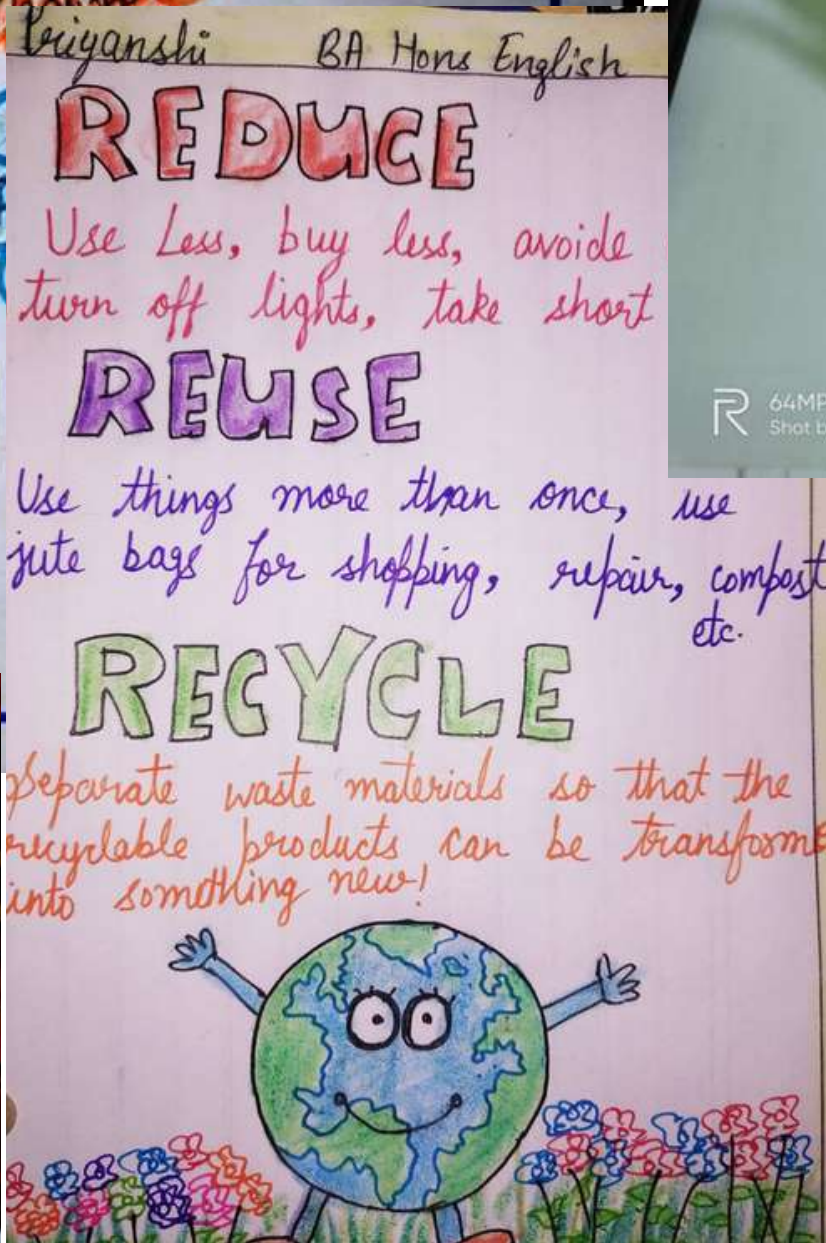 Priyanshi BA Hons English
REDUCE
Use Less, buy less, avoide
turn off lights, take short
REUSE
Use things more than once, use
jute bags for shopping, repair, compost
etc.
RECYCLE
Separate waste materials so that the
recyclable products can be transforme
into somdthing new!
64MP
Shot b